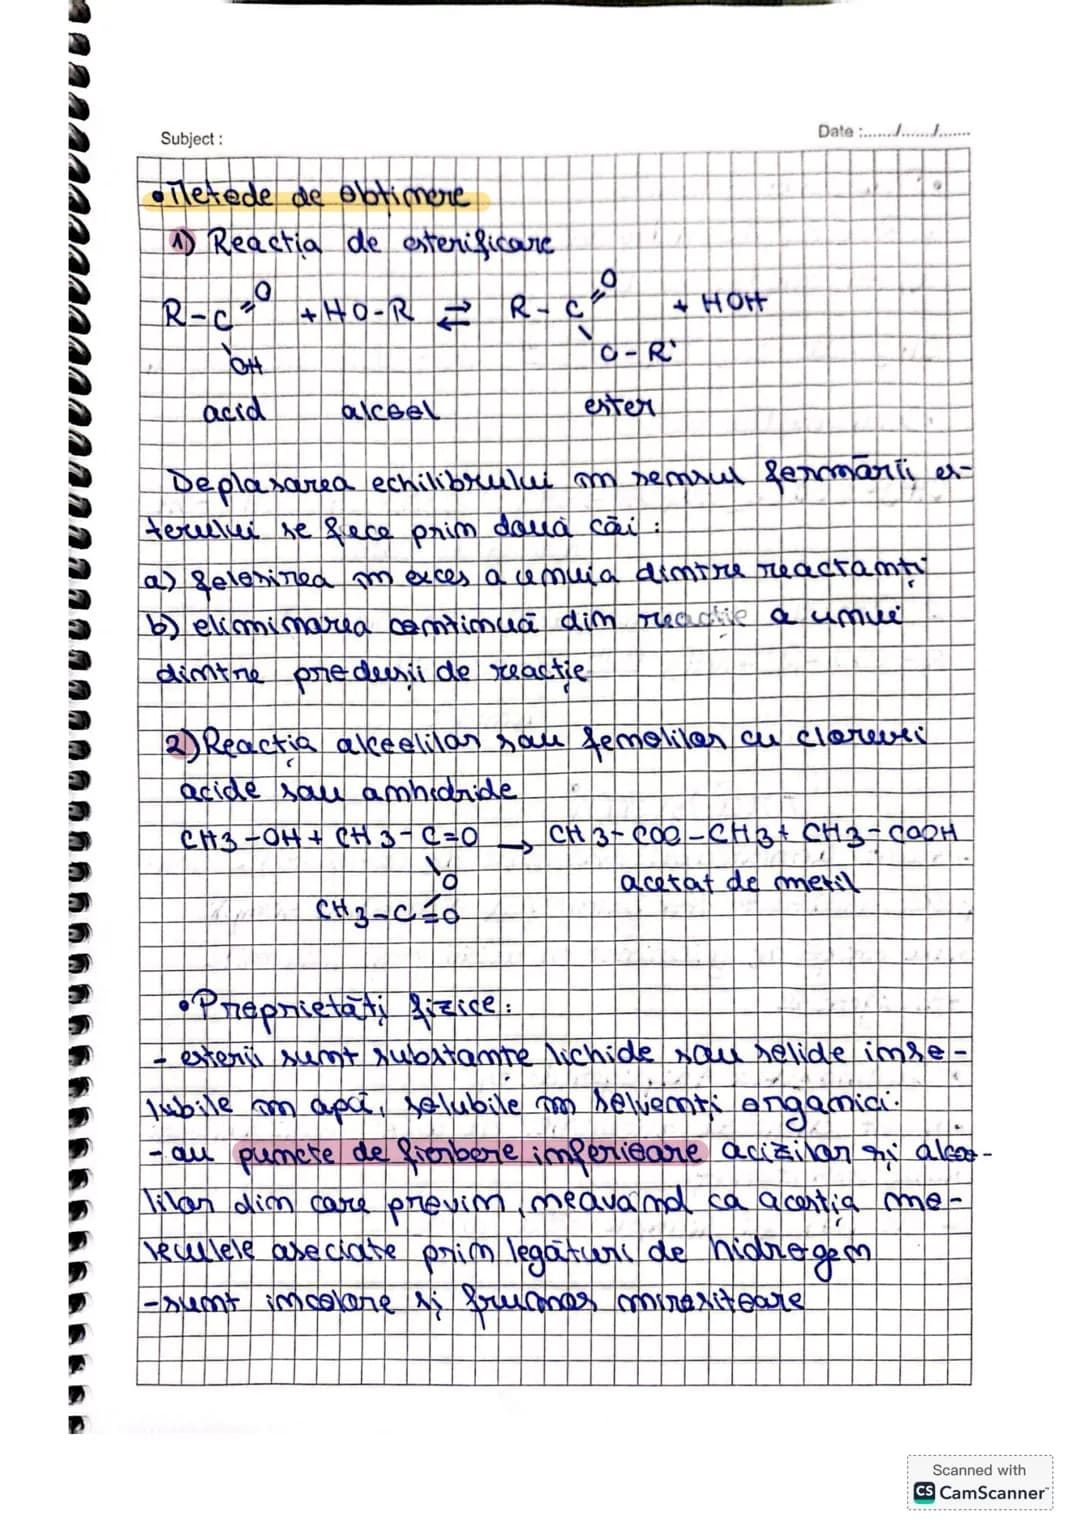 Subject :
Date :....../....../......
• Metode de obtinere
1) Reacția de esterificare
R-C=O + HO-R ⇄ R-C=O + HOH
OH O-R'
acid alcool ester
Deplasarea echilibrului în sensul formării es-
terului se face prin două căi :
a) folosirea în exces a unuia dintre reactanți
b) eliminarea continuă din reacție a unui
dintre produșii de reacție
2) Reacția alcoolilor sau fenolilor cu cloruri
acide sau anhidride
CH3-OH + CH3-C=O → CH3-COO-CH3 + CH3-COOH
O acetat de metil
CH3-C=O
• Proprietăți fizice:
- esterii sunt substanțe lichide sau solide inso-
lubile în apă, solubile în solvenți organici.
- au puncte de fierbere inferioare acizilor și alcoo-
lilor din care provin, neavând ca aceștia mo-
leculele asociate prin legături de hidrogen
- sunt incolore și frumos mirositoare
Scanned with
CS CamScanner